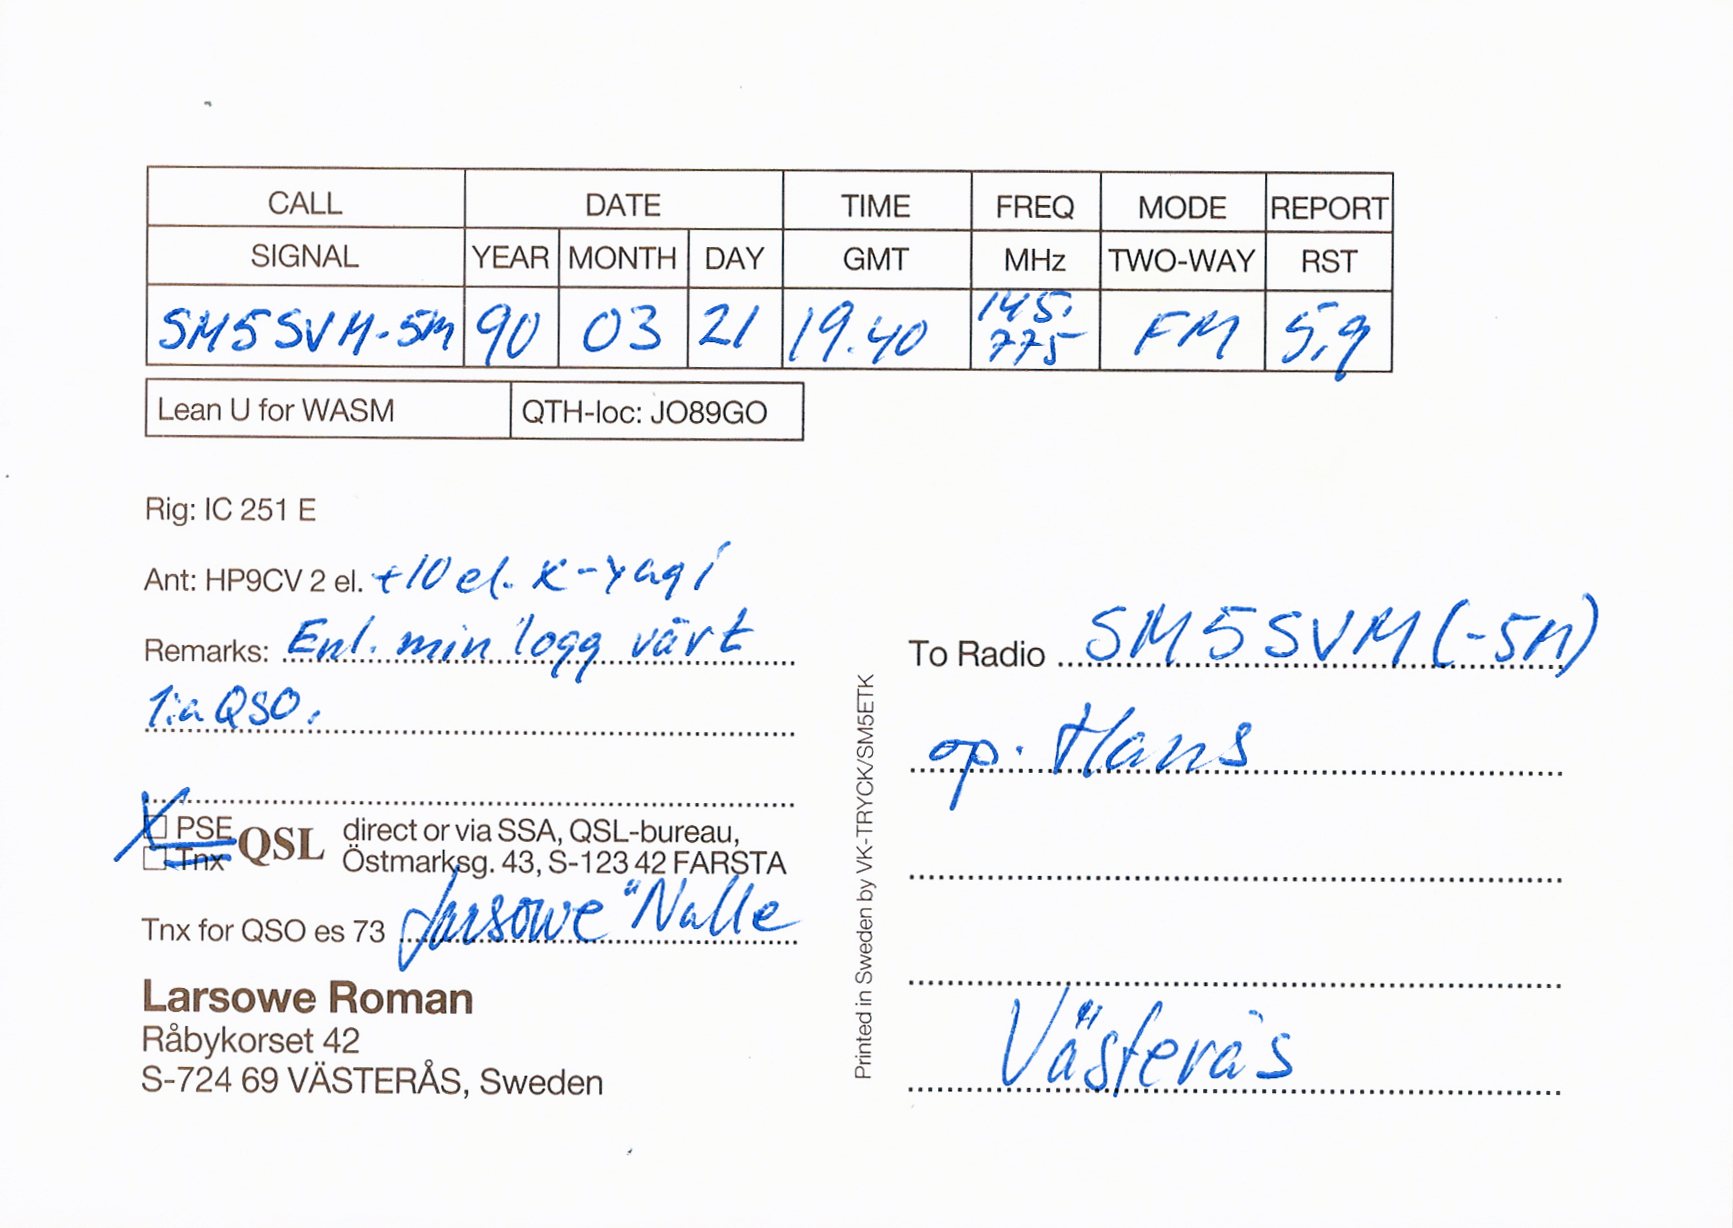 CALL DATE TIME FREQ MODE REPORT
SIGNAL YEAR MONTH DAY GMT MHz TWO-WAY RST
SM5SVM-5M 90 03 21 19.40 145.775 FM 5,9
Lean U for WASM QTH-loc: JO89GO
Rig: IC 251 E
Ant: HP9CV 2 el. +10 el. K-Yagi
Remarks: Enl. min logg vårt
1:a QSO.
PSE
Tnx
QSL
direct or via SSA, QSL-bureau,
Östmarksg. 43, S-123 42 FARSTA
Tnx for QSO es 73 Larsowe "Nalle
Larsowe Roman
Råbykorset 42
S-724 69 VÄSTERÅS, Sweden
Printed in Sweden by VK-TRYCK/SM5ETK
To Radio SM5SVM (-5M)
op. Hans
Västerås